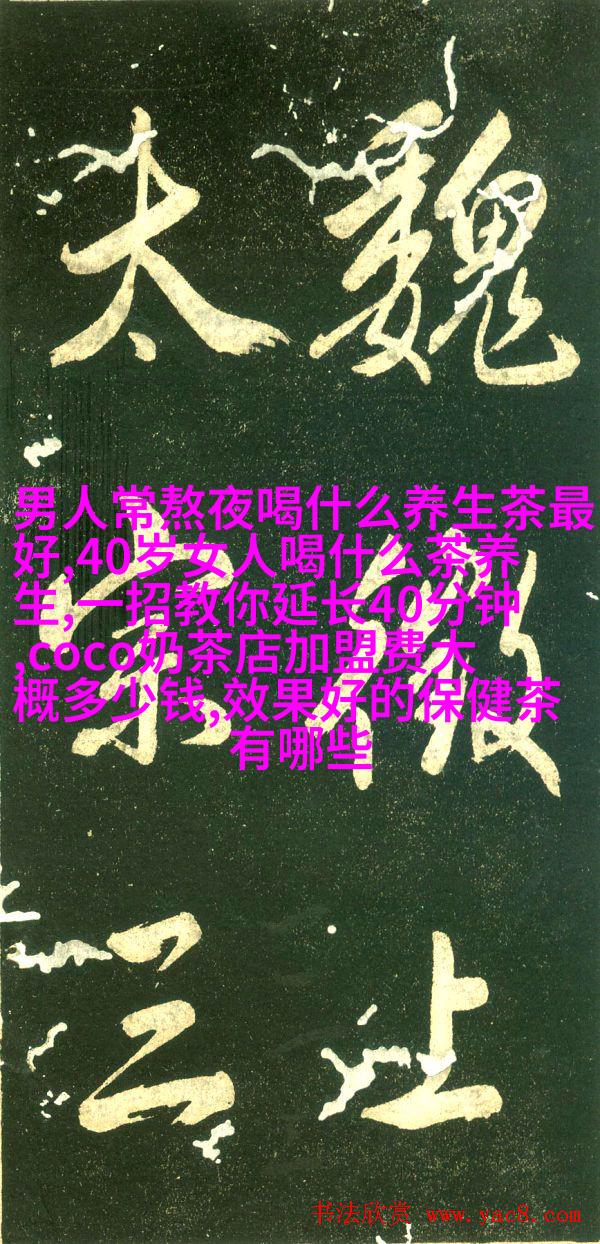 魏徵上
太宗三
男人常熬夜喝什么养生茶最
好,40岁女人喝什么茶养
生,一招教你延长40分钟
,coco奶茶店加盟费大
概多少钱,效果好的保健茶
有哪些
书法欣赏 www.yac8.com